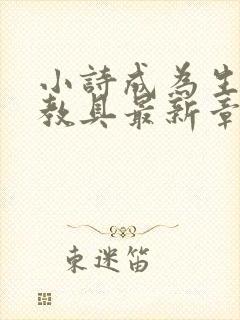 小詩成為生
教具最新章
束迷笛